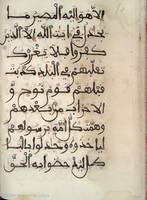 الا هو اليه المصير ما
يجدل في ايت الله الا الذين
كفروا فلا يغررك
تقلبهم في البلد كذبت
قبلهم قوم نوح و
الاحزاب من بعدهم
وهمت كل امة برسولهم
لياخذوه وجدلوا بالبا
طل ليدحضوا به الحق